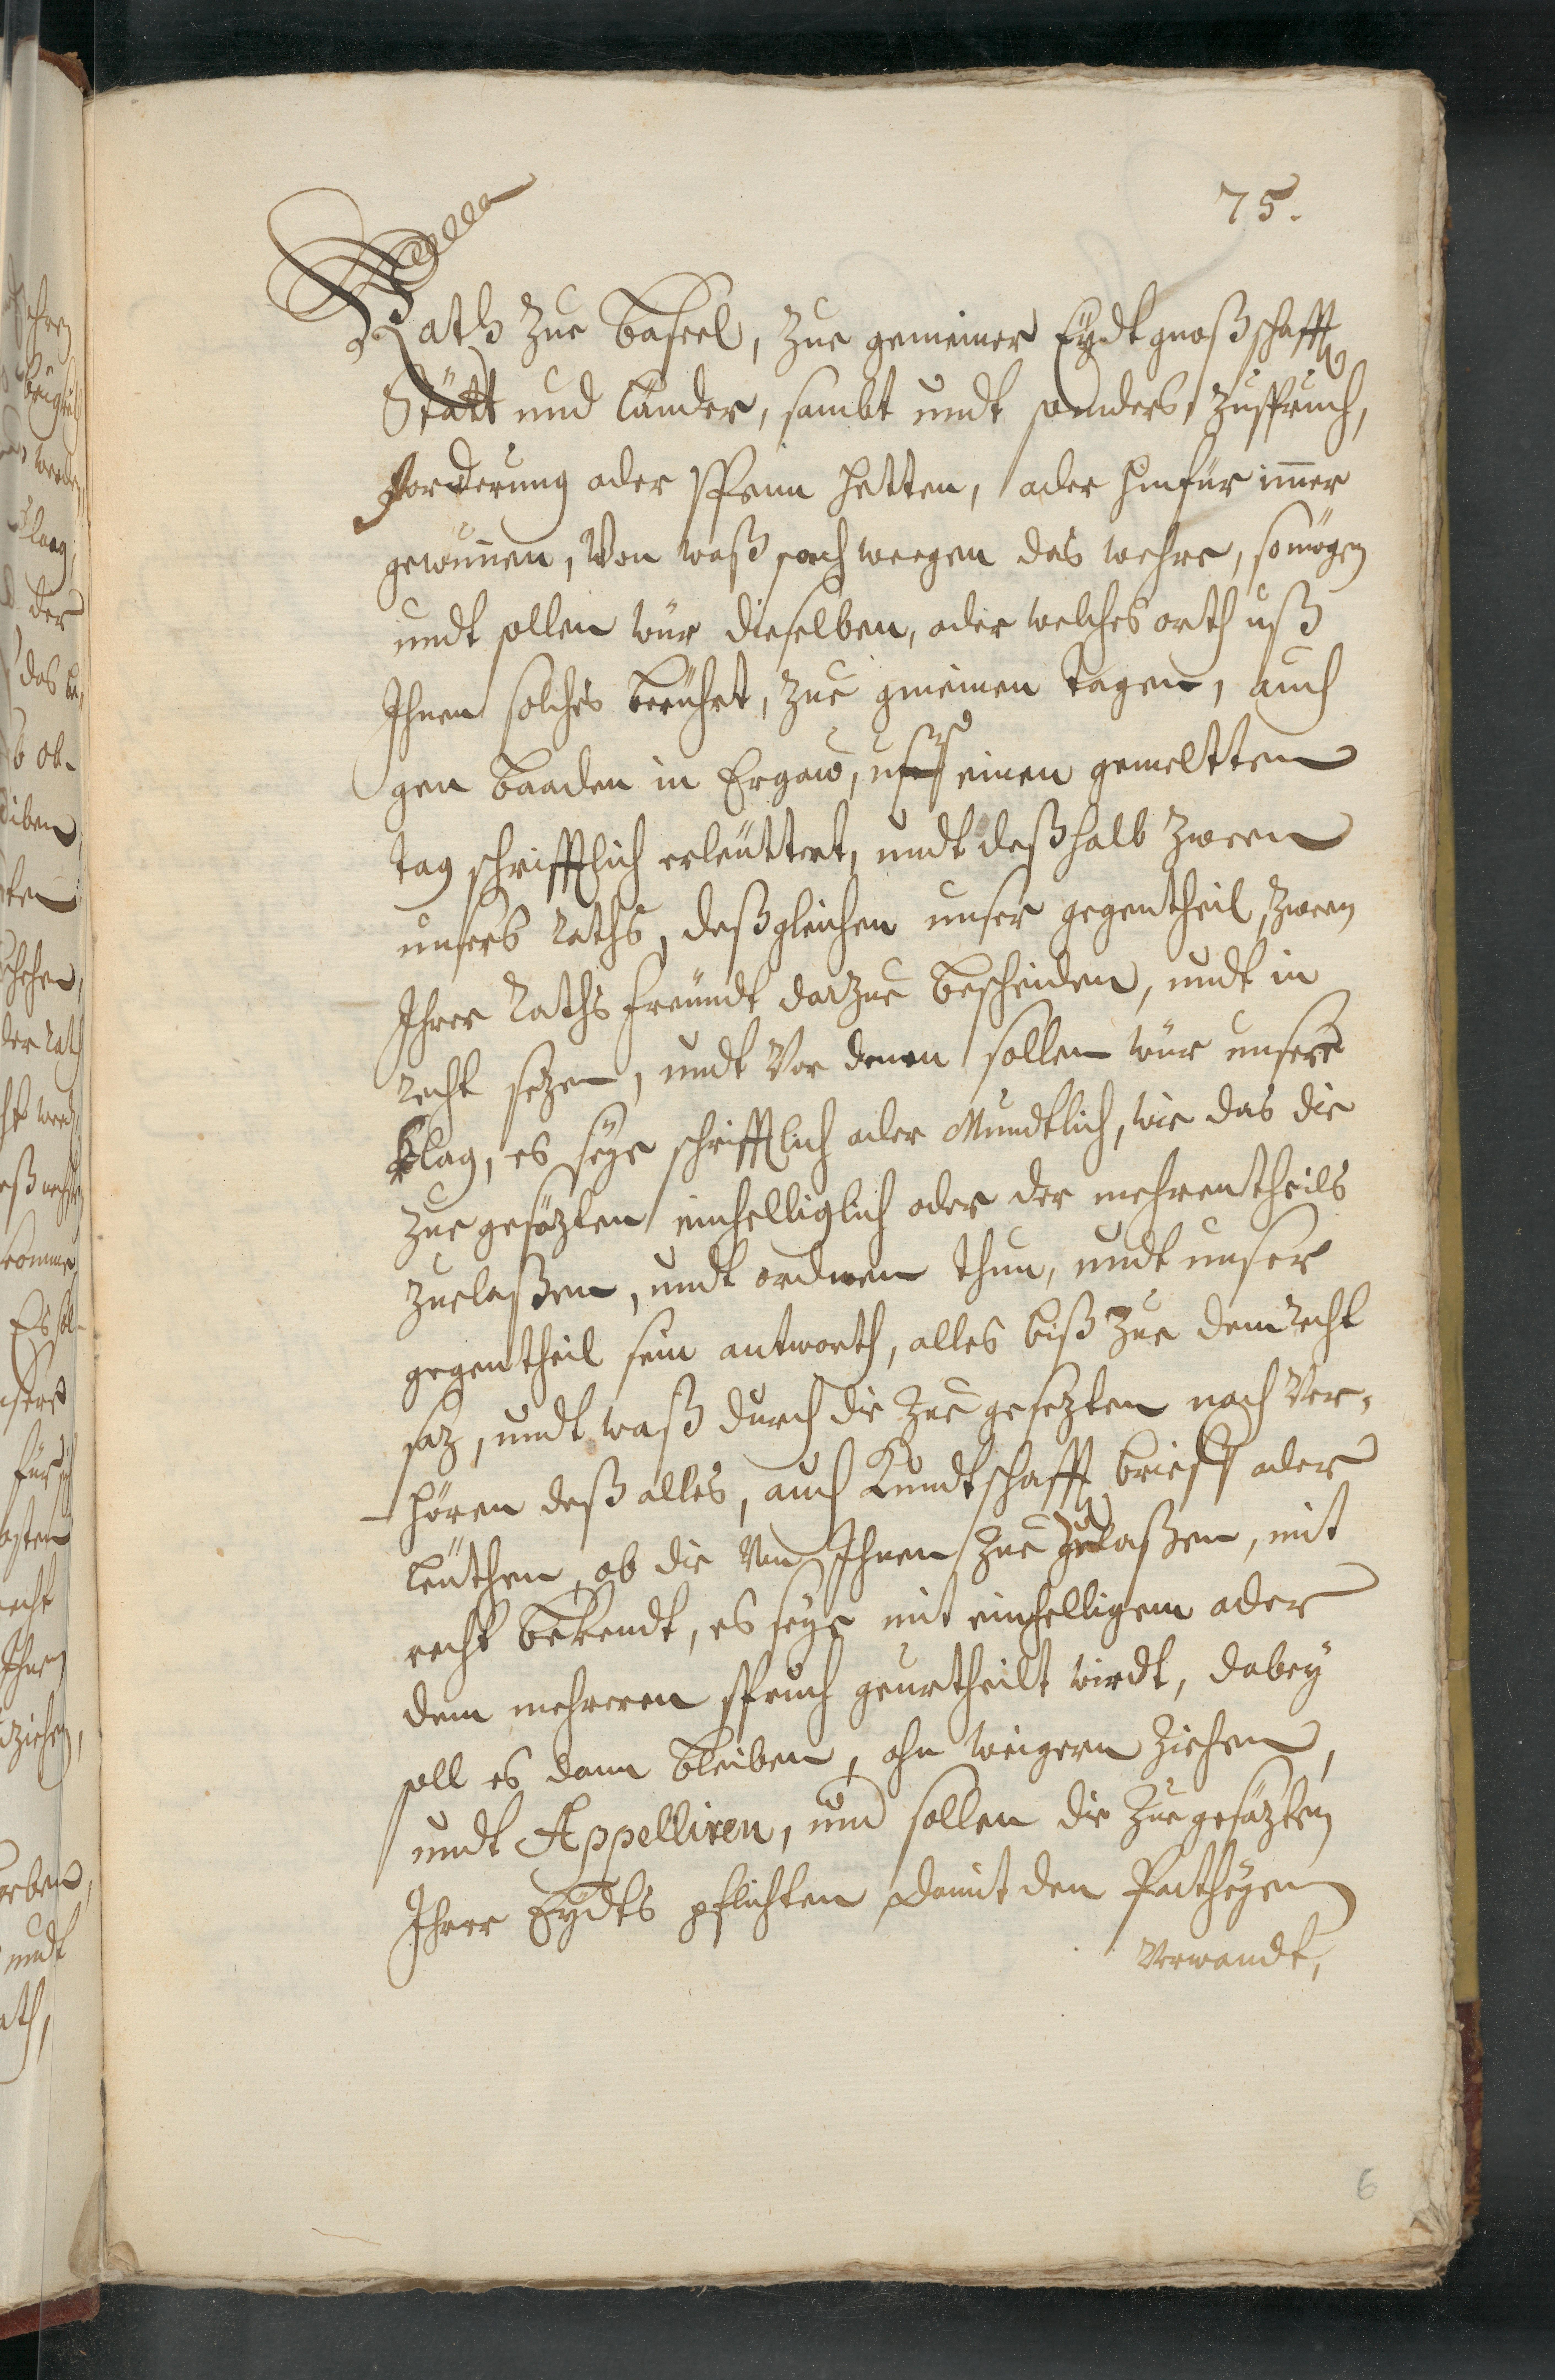 75.
Rath zue Baseel, zue gemeiner Eydtgnoßschafft
Stätt und Länder, sambt undt sonders, zuspruch,
forderung oder Spenn hetten, oder hinfür immer
gewunnen, Von waß sach weegen das wehre, so mögen
undt sollen wür dieselben, oder welches orth uß
Ihnen solches berührt, zue gmeinen Tagen, auch
gen Baaden in Ergaw, uff einen gemeltten
tag schrifftlich erleüttert, undt deßhalb zween
unsers Raths, deßgleichen unser gegentheil, zween
Ihrer Raths freündt darzue bescheiden, undt in
recht sezen, undt Vor denen sollen wür unsere
klag, es seye schrifftlich oder Mundtlich, wie das die
zue gesäzten einhelliglich oder der mehrentheils
zuelaßen, undt ordnen thun, undt unser
gegentheil sein antworth, alles biß zue dem recht
saz, undt waß durch die zue gesezten nach Ver-
hören deß alles, auch Kundtschafft brieff oder
leüthen, ob die Von Ihnen zue gelaßen, mit
recht bekendt, es seye mit einhelligem oder
dem mehreren spruch geurtheilt wirdt, dabey
soll es dann bleiben, ohn weigern ziehen,
undt Appelliren, und sollen die zue gesäzten
Ihrer Eydts pflichten damit den Partheyen
Verwandt,
6